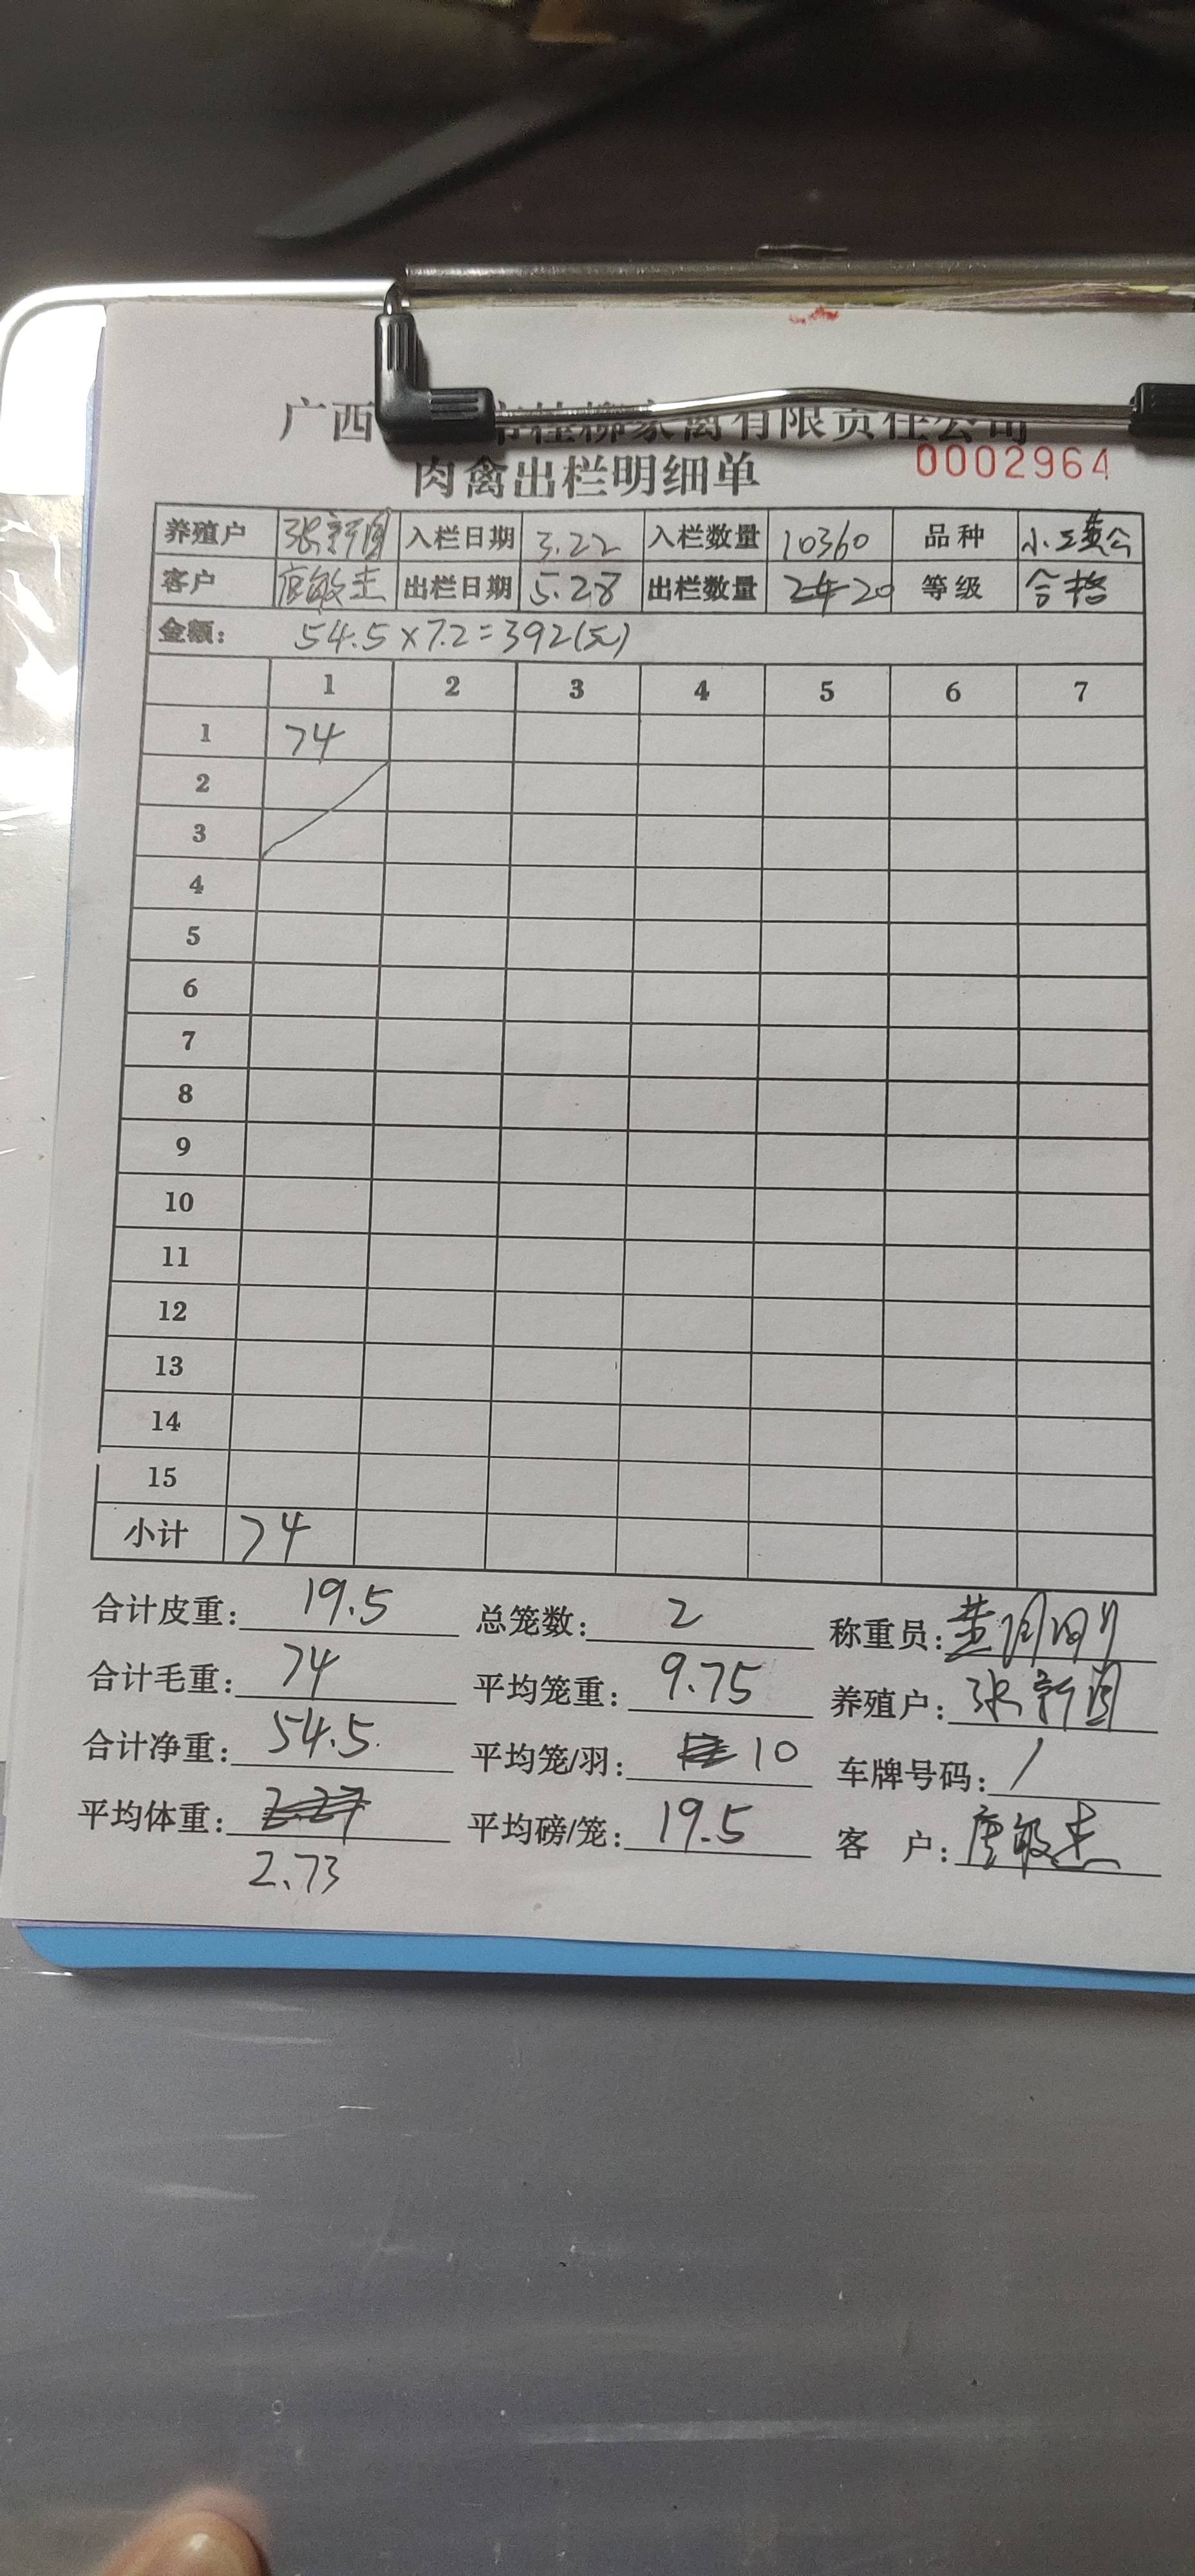 广西 桂柳家禽有限责任公司
肉禽出栏明细单 0002964
养殖户 张新国 入栏日期 3.22 入栏数量 10360 品种 小三黄公
客户 唐敏杰 出栏日期 5.28 出栏数量 20 等级 合格
金额: 54.5×7.2=392(元)
1 2 3 4 5 6 7
1 74
2
3
4
5
6
7
8
9
10
11
12
13
14
15
小计 74
合计皮重: 19.5 总笼数: 2 称重员:
合计毛重: 74 平均笼重: 9.75 养殖户: 张新国
合计净重: 54.5 平均笼/羽: 10 车牌号码: /
平均体重: 2.27 平均磅/笼: 19.5 客 户: 唐敏杰
2.73